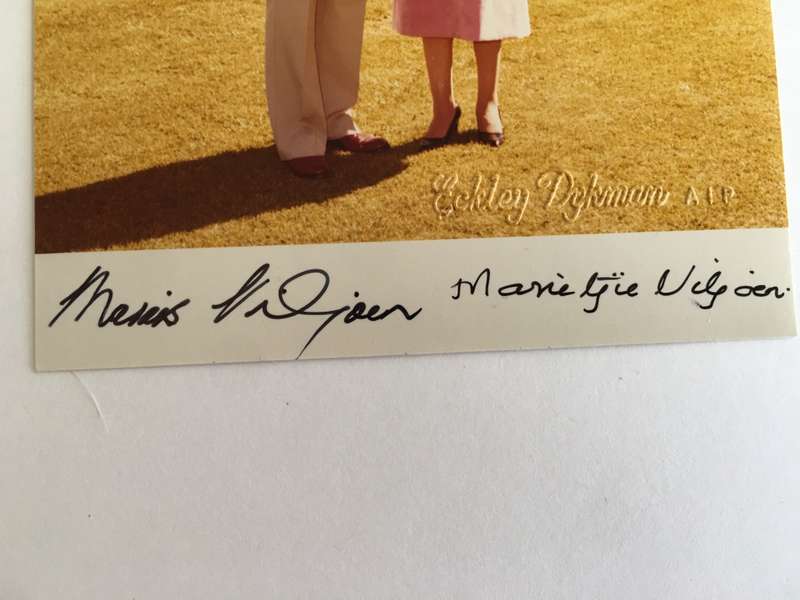 Eckley Dykman AIP
Marais Viljoen Marietjie Viljoen.